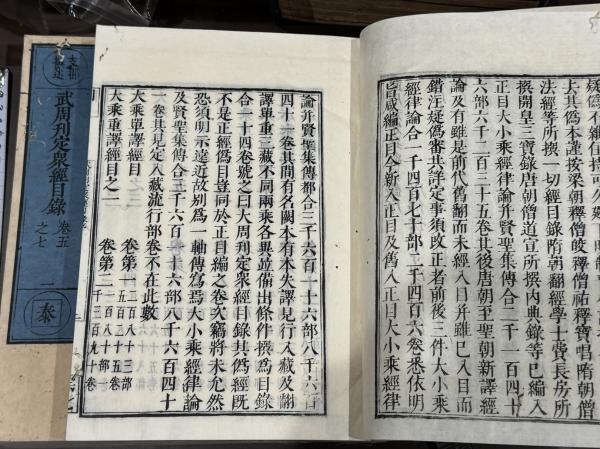 去其爲本謹按梁朝釋僧皎釋僧祐釋寶唱隋朝僧
法經等所撰一切經目錄隋朝翻經學士費長房所
撰開皇三寶錄唐朝僧道宣所撰內典錄等已編入
正目大小乘經律論并賢聖集傳合二千一百四十
六部六千二百三十五卷其後唐朝至聖朝新譯經
論及有雖是前代舊翻而未經入目并雖已入目而
錯注疑僞審共詳定事須改正者前後三件大小乘
經律論合一千四百七十部二千四百六卷悉依明
旨咸編正目今新入正目及舊入正目大小乘經律
論并賢聖集傳都合三千六百一十六部八千六百
四十一卷其間有名闕本有本失譯見行入藏及翻
譯單重三藏不同兩乘各異並備出條件撰爲目錄
合一十四卷號之曰大周刊定衆經目錄其僞經旣
不是正經僞目豈同於正目編之卷次竊將未允然
恐須明示遠近故別爲一軸傳寫焉大小乘律論
及賢聖集傳合三千六百一十六部八千六百四十
一卷其見定入藏流行部卷不在此數
大乘單譯經目 卷第一
大乘重譯經目之二 卷第二
武周刊定衆經目錄 卷五之七
二
泰